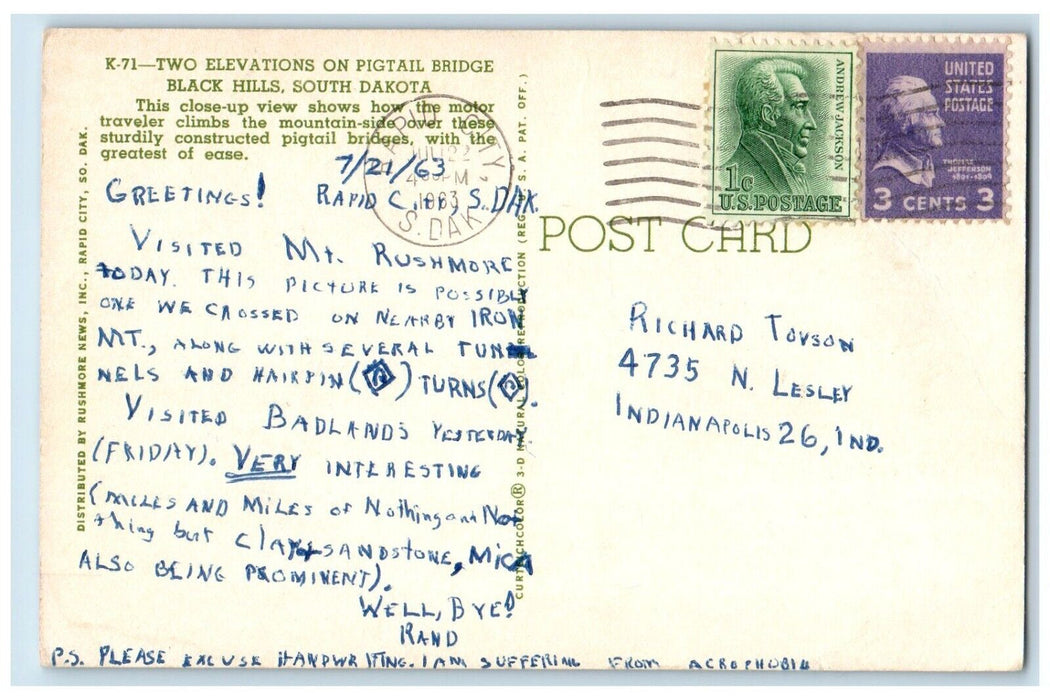 K-71—TWO ELEVATIONS ON PIGTAIL BRIDGE
BLACK HILLS, SOUTH DAKOTA
This close-up view shows how the motor
traveler climbs the mountain-side over these
sturdily constructed pigtail bridges, with the
greatest of ease.
7/21/63
GREETINGS! RAPID CITY, S. DAK.
VISITED MT. RUSHMORE
TODAY. THIS PICTURE IS POSSIBLY
ONE WE CROSSED ON NEARBY IRON
MT., ALONG WITH SEVERAL TUN
NELS AND HAIRPIN ( ) TURNS ( ).
VISITED BADLANDS YESTERDAY
(FRIDAY). VERY INTERESTING
(MILES AND MILES OF Nothing and No
thing but CLAY SANDSTONE, MICA
ALSO BEING PROMINENT).
WELL, BYE!
RAND
P.S. PLEASE EXCUSE HANDWRITING. I AM SUFFERING FROM ACROPHOBIA
DISTRIBUTED BY RUSHMORE NEWS, INC., RAPID CITY, SO. DAK.
CURTEICHCOLOR® 3-D NATURAL COLOR REPRODUCTION (REG. U. S. A. PAT. OFF.)
RAPID CITY
JUL 22
4 PM
1963
S. DAK.
ANDREW JACKSON
1c
U.S. POSTAGE
UNITED
STATES
POSTAGE
THOMAS
JEFFERSON
1801-1809
3 CENTS 3
POST CARD
RICHARD TOVSON
4735 N. LESLEY
INDIANAPOLIS 26, IND.